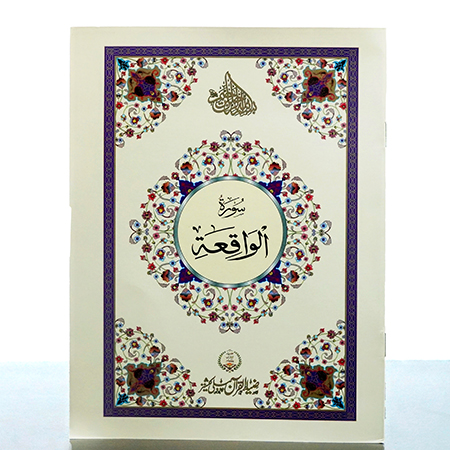 بسم الله الرحمن الرحيم
سُورَةُ
الْوَاقِعَةِ
ضیاء القرآن پبلی کیشنز